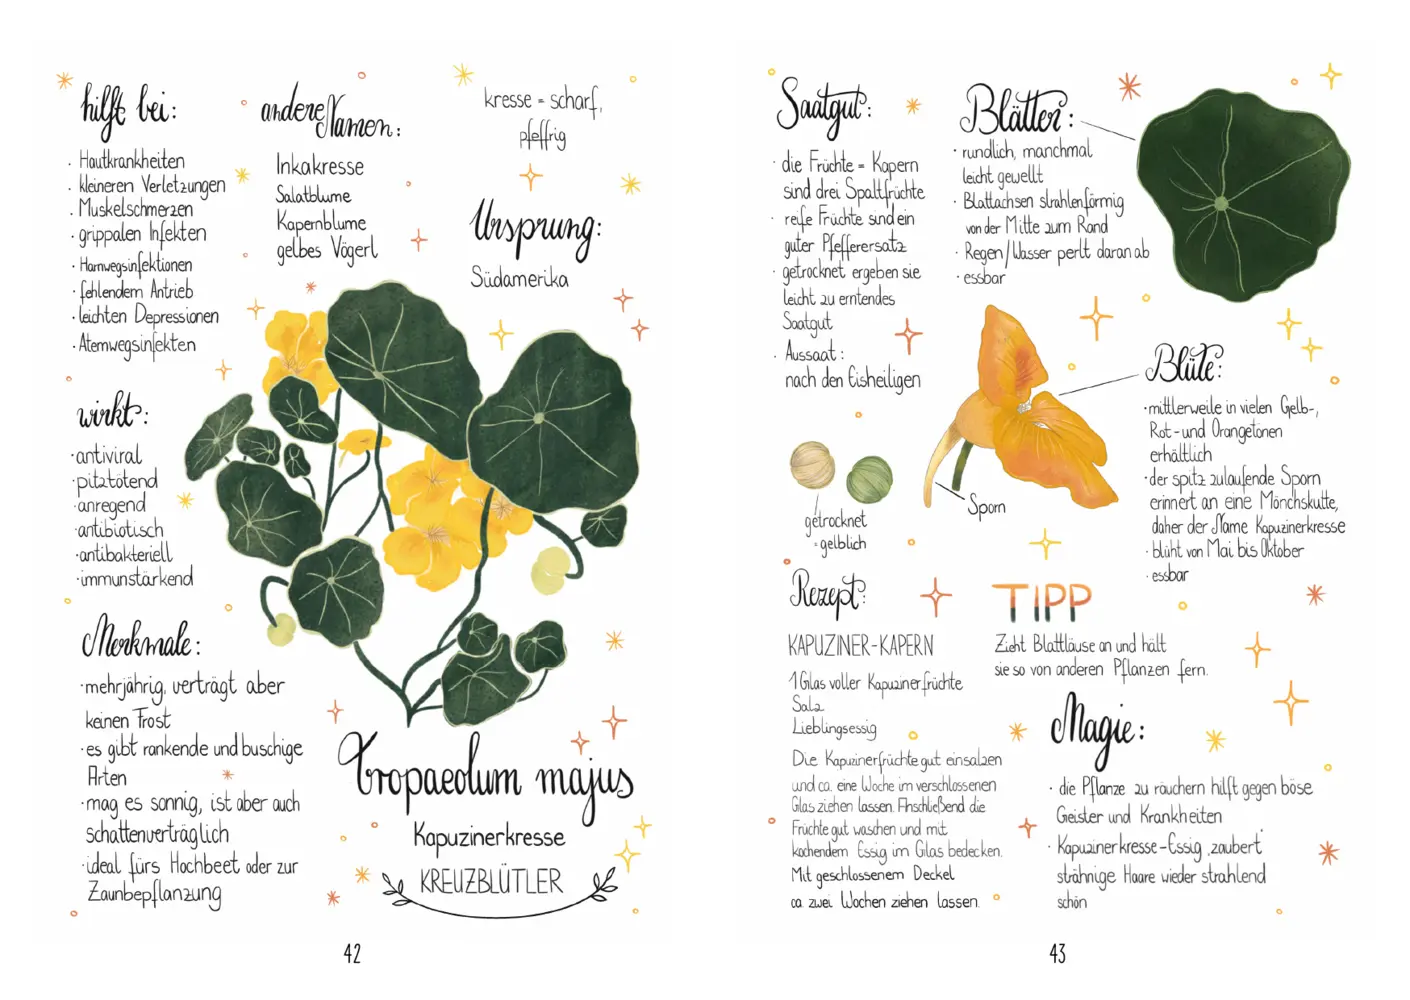 hilft bei:
· Hautkrankheiten
· kleineren Verletzungen
· Muskelschmerzen
· grippalen Infekten
· Harnwegsinfektionen
· fehlendem Antrieb
· leichten Depressionen
· Atemwegsinfekten
wirkt:
·antiviral
·pilztötend
·anregend
·antibiotisch
·antibakteriell
·immunstärkend
Merkmale:
·mehrjährig, verträgt aber
keinen Frost
·es gibt rankende und buschige
Arten
·mag es sonnig, ist aber auch
schattenverträglich
·ideal fürs Hochbeet oder zur
Zaunbepflanzung
andere Namen:
Inkakresse
Salatblume
Kapernblume
gelbes Vögerl
kresse = scharf,
pfeffrig
Ursprung:
Südamerika
Tropaeolum majus
Kapuzinerkresse
KREUZBLÜTLER
42
Saatgut:
· die Früchte = Kapern
sind drei Spaltfrüchte
· reife Früchte sind ein
guter Pfefferersatz
· getrocknet ergeben sie
leicht zu erntendes
Saatgut
· Aussaat:
nach den Eisheiligen
getrocknet
= gelblich
Blätter:
· rundlich, manchmal
leicht gewellt
· Blattachsen strahlenförmig
von der Mitte zum Rand
· Regen/Wasser perlt daran ab
· essbar
Sporn
Blüte:
·mittlerweile in vielen Gelb-,
Rot- und Orangetönen
erhältlich
·der spitz zulaufende Sporn
erinnert an eine Mönchskutte,
daher der Name Kapuzinerkresse
· blüht von Mai bis Oktober
· essbar
Rezept:
KAPUZINER-KAPERN
1 Glas voller Kapuzinerfrüchte
Salz
Lieblingsessig
Die Kapuzinerfrüchte gut einsalzen
und ca. eine Woche im verschlossenen
Glas ziehen lassen. Anschließend die
Früchte gut waschen und mit
kochendem Essig im Glas bedecken.
Mit geschlossenem Deckel
ca. zwei Wochen ziehen lassen.
TIPP
Zieht Blattläuse an und hält
sie so von anderen Pflanzen fern.
Magie:
· die Pflanze zu räuchern hilft gegen böse
Geister und Krankheiten
· Kapuzinerkresse-Essig „zaubert"
strähnige Haare wieder strahlend
schön
43